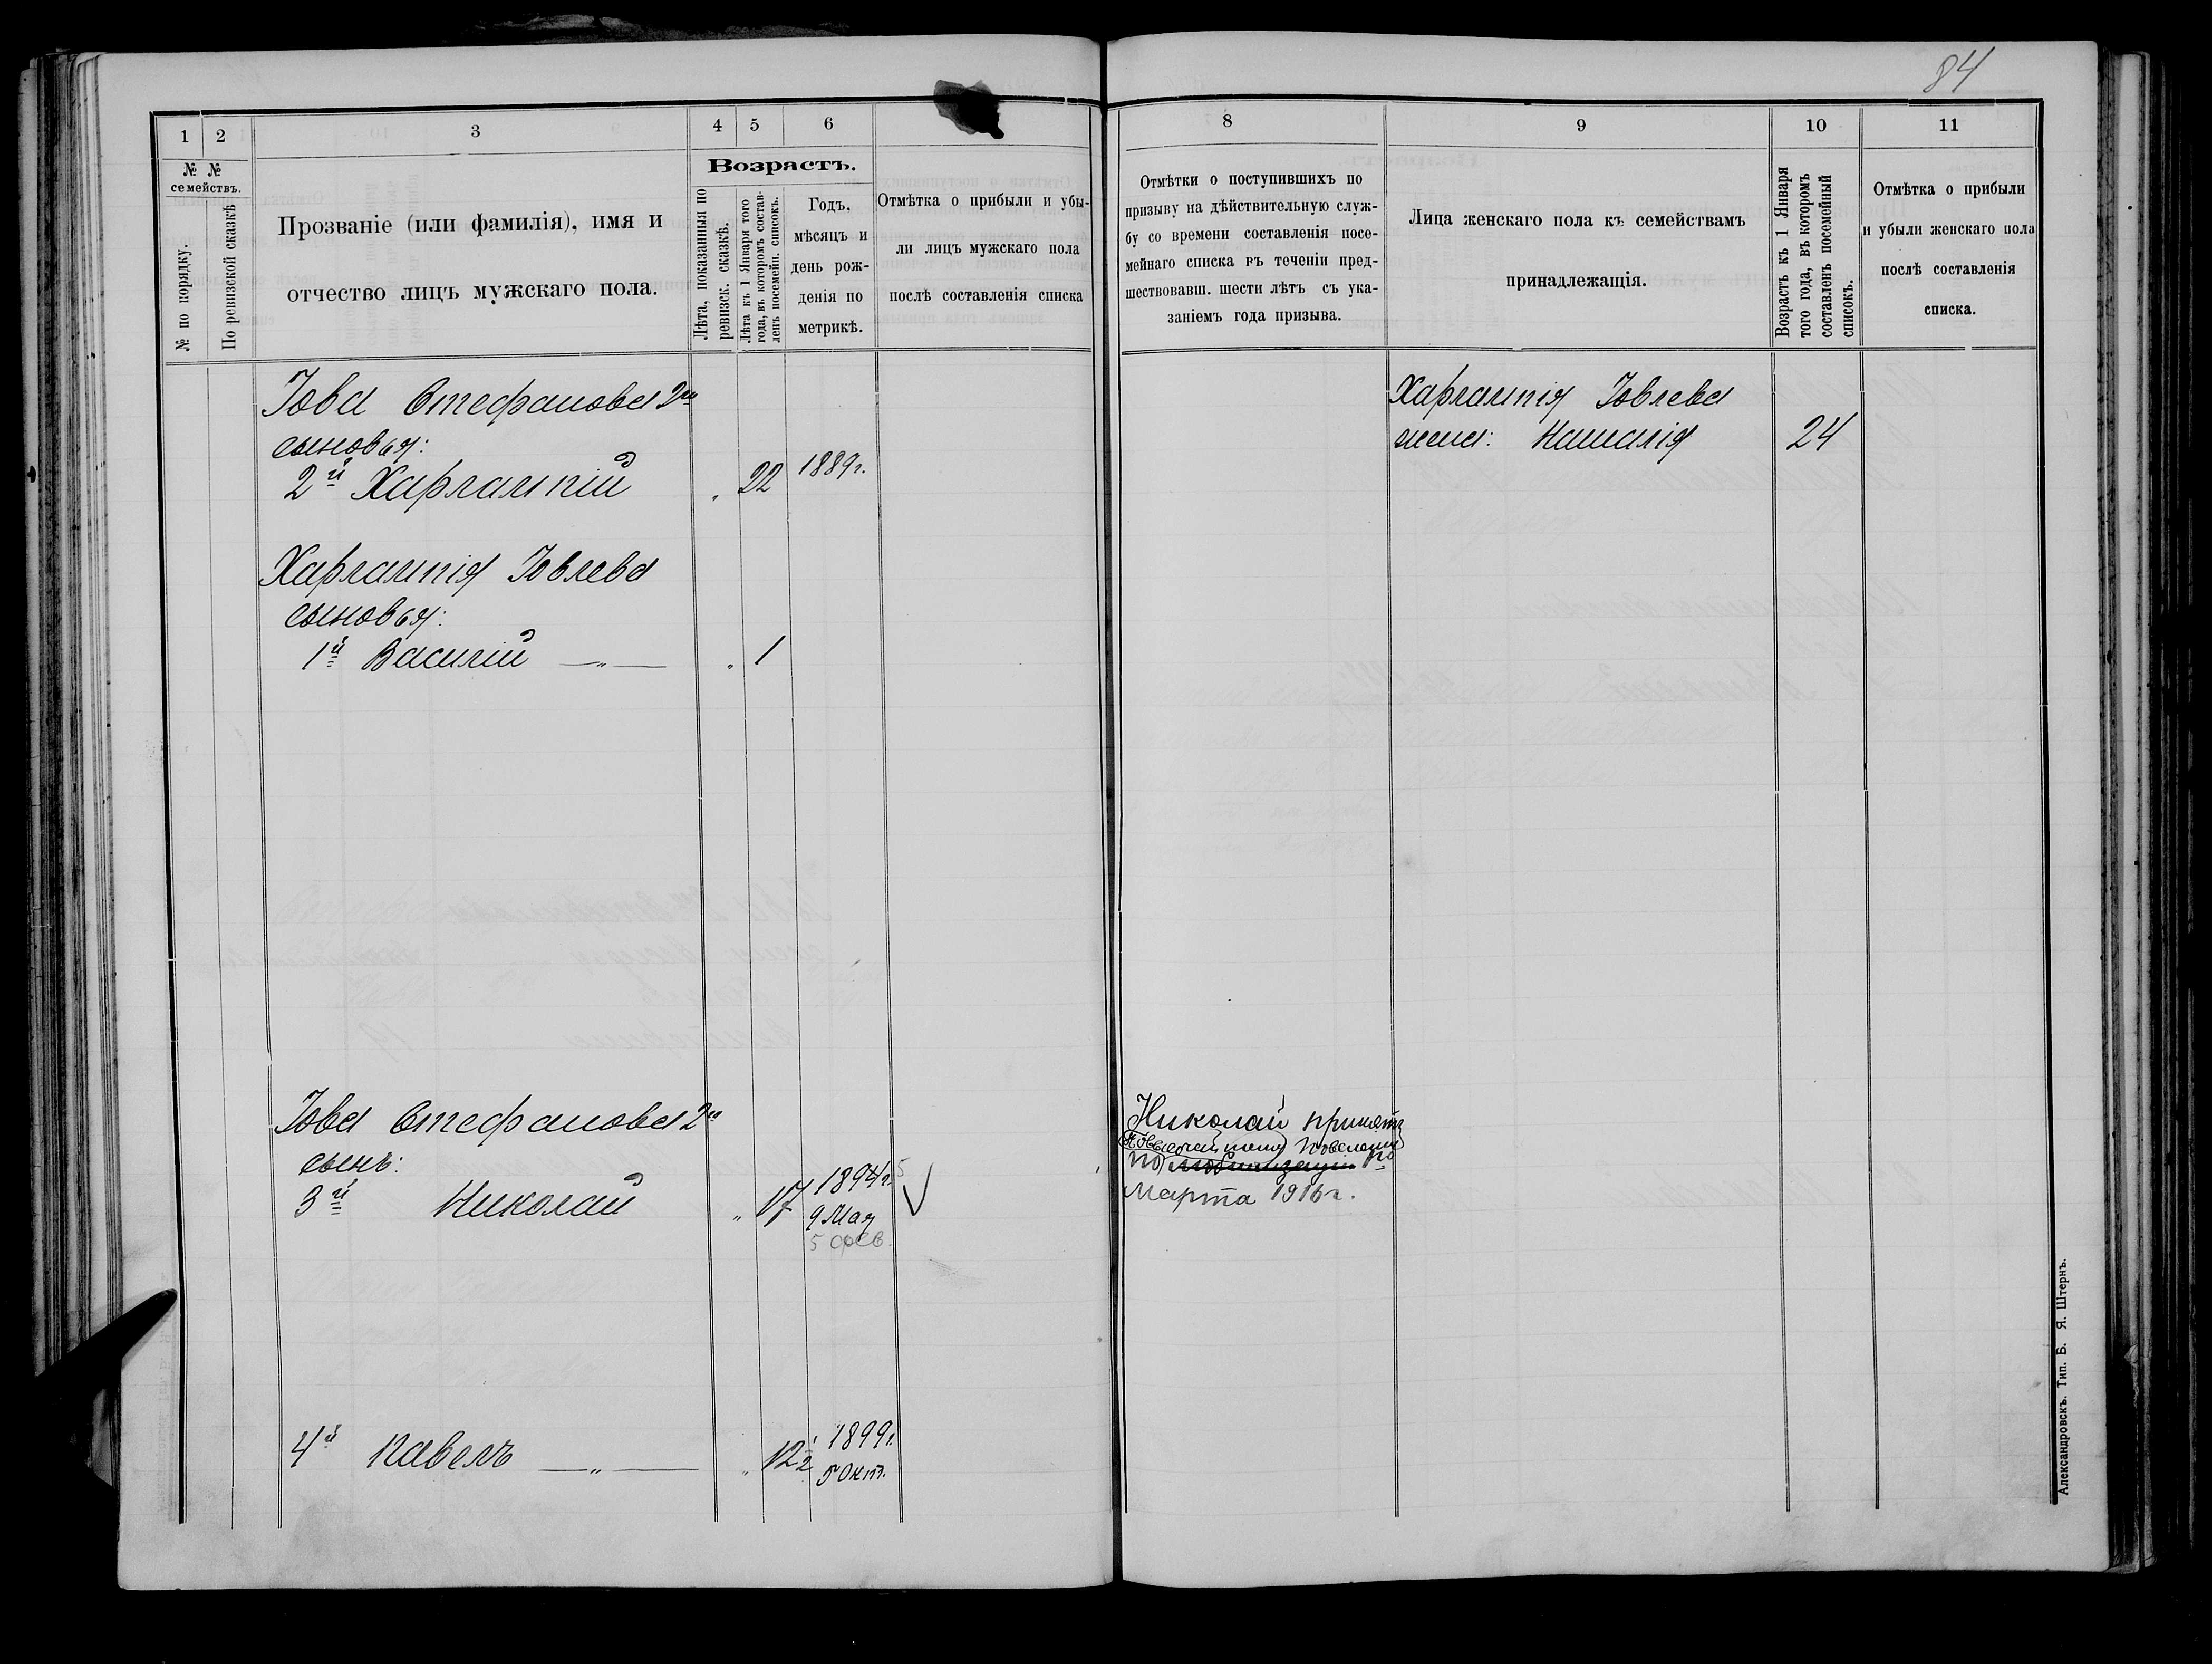 84
1
2
3
4
5
6
8
9
10
11
№ №
семействъ.
№ по порядку.
По ревизской сказкѣ
Прозваніе (или фамилія), имя и
отчество лицъ мужскаго пола.
Возрастъ.
Лѣта, показанныя по
ревизск. сказкѣ.
Лѣта къ 1 Января того
года, въ которомъ состав-
ленъ посемейн. списокъ.
Годъ,
мѣсяцъ и
день рож-
денія по
метрикѣ.
Отмѣтка о прибыли и убы-
ли лицъ мужскаго пола
послѣ составленія списка
Отмѣтки о поступившихъ по
призыву на дѣйствительную служ-
бу со времени составленія посе-
мейнаго списка въ теченіи пред-
шествовавш. шести лѣтъ съ ука-
заніемъ года призыва.
Лица женскаго пола къ семействамъ
принадлежащія.
Возрастъ къ 1 Января
того года, въ которомъ
составленъ посемейный
списокъ.
Отмѣтка о прибыли
и убыли женскаго пола
послѣ составленія
списка.
Іова Стефанова 2го
сыновья:
2й Харлампій „ 22 1889г.
Харлампія Іовлева
сыновья:
1й Василій —„— „ 1
Іова Стефанова 2го
сынъ:
3й Николай „ 17 1894г. 5
9 Мая
5 фев.
4й Павелъ —„— „ 12½ 1899г.
5 Окт.
Николай принятъ
Высочайшему повелѣнію
по мобилизаціи
Марта 1916г.
Харлампія Іовлева
жена: Наталія 24
Александровскъ. Тип. Б. Я. Штернъ.